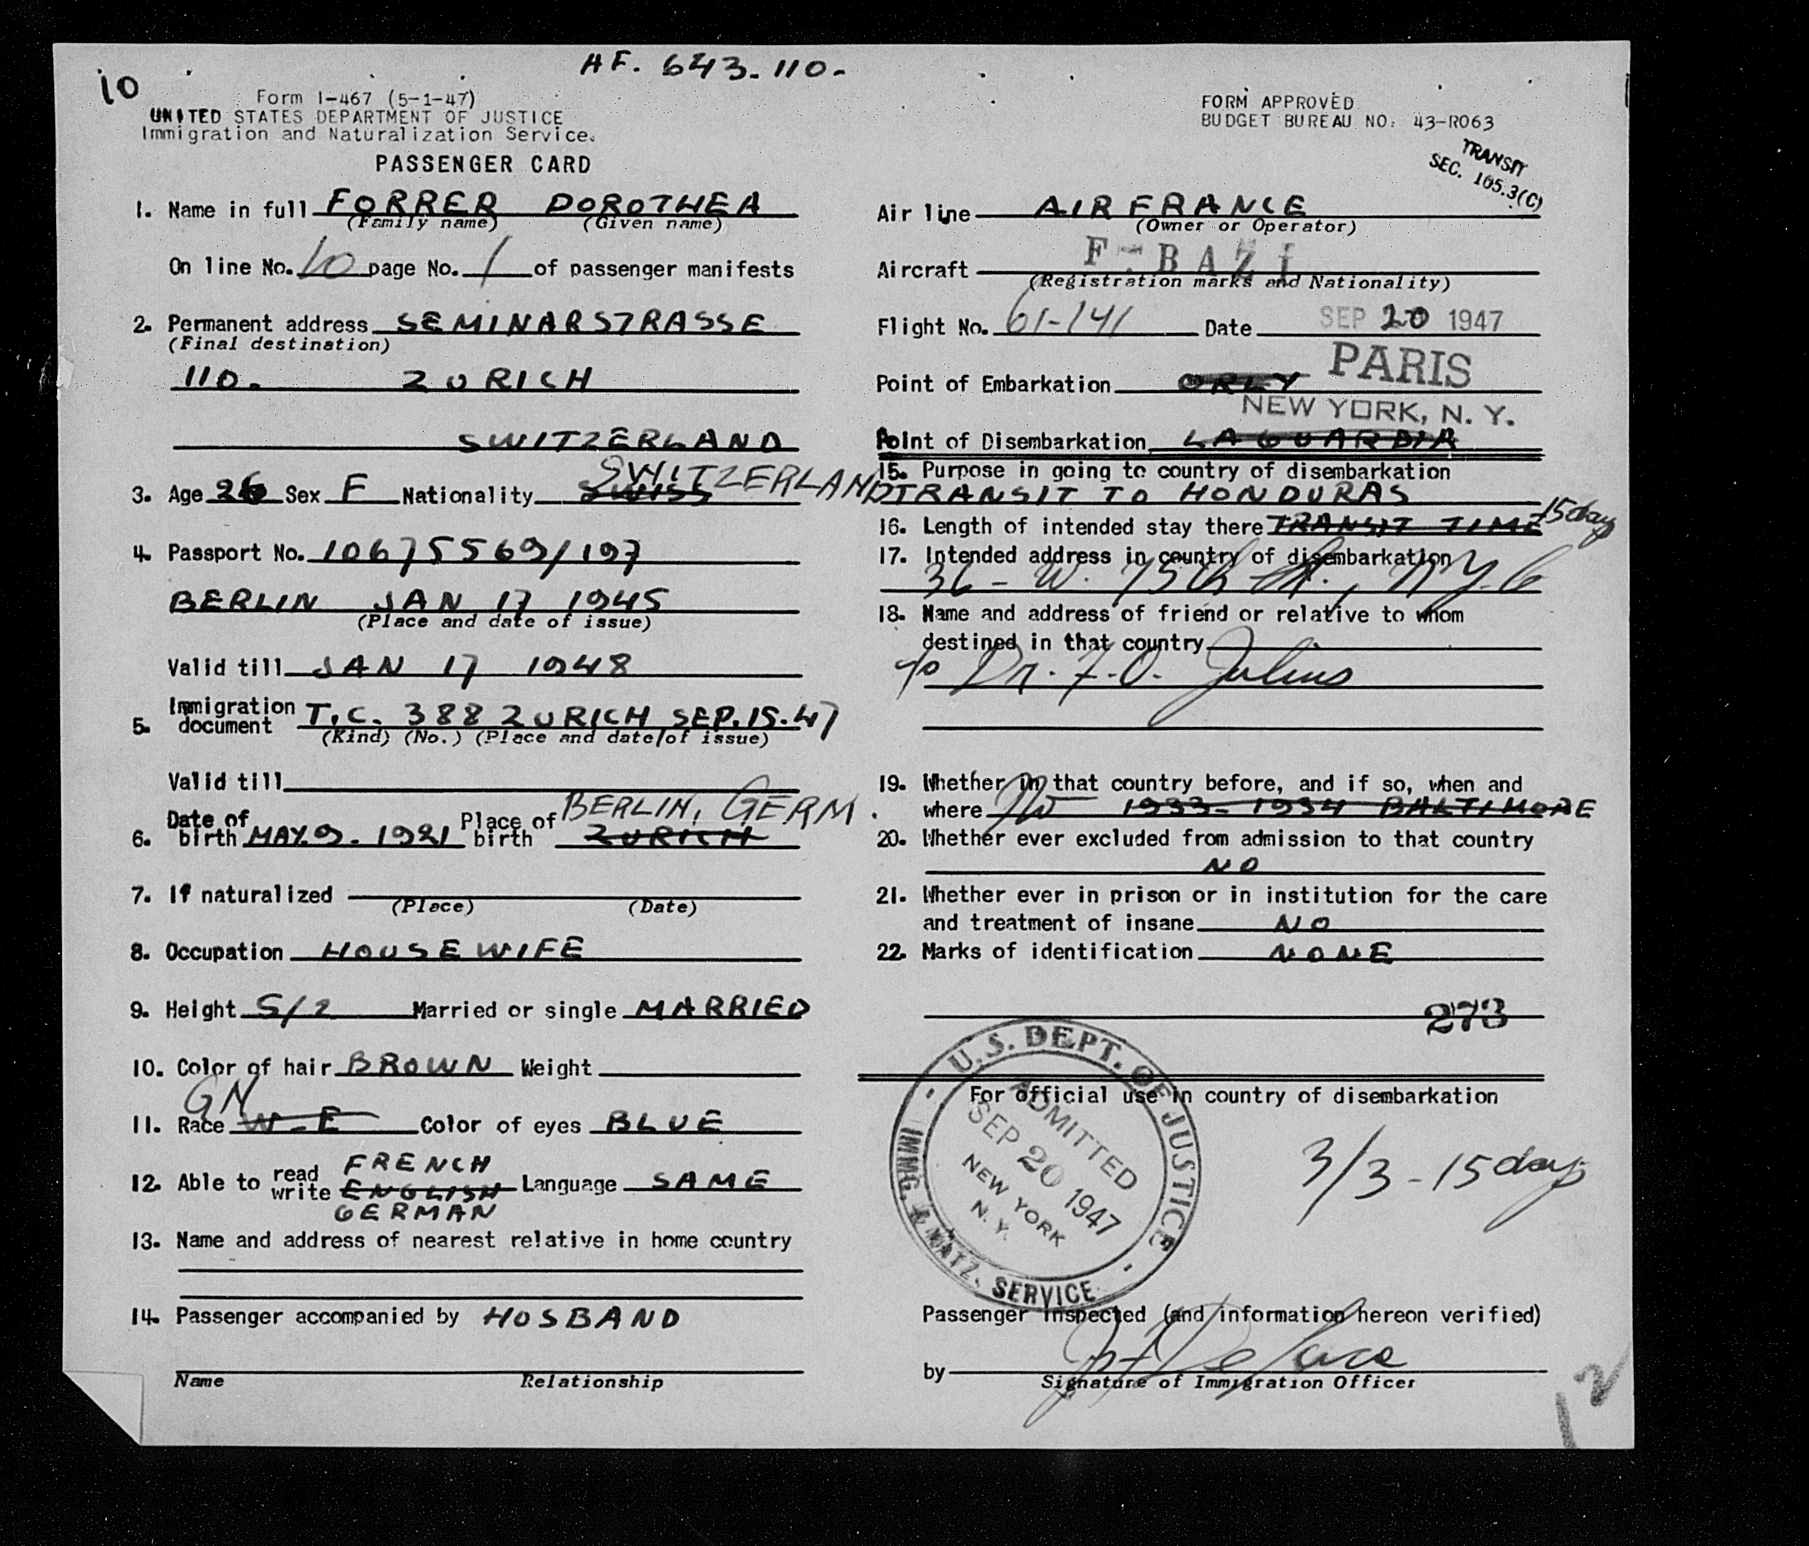 AF. 643.110-
10
Form I-467 (5-1-47)
UNITED STATES DEPARTMENT OF JUSTICE
Immigration and Naturalization Service.
PASSENGER CARD
FORM APPROVED
BUDGET BUREAU NO. 43-R063
TRANSIT
SEC. 165.3(C)
1. Name in full FORRER DOROTHEA
(Family name) (Given name)
On line No. 10 page No. 1 of passenger manifests
2. Permanent address SEMINARSTRASSE
(Final destination)
110. ZURICH
SWITZERLAND
3. Age 26 Sex F Nationality SWISS SWITZERLAND
4. Passport No. 10675569/197
BERLIN JAN 17 1945
(Place and date of issue)
Valid till JAN 17 1948
5. Immigration document T.C. 388 ZURICH SEP.15.47
(Kind) (No.) (Place and date of issue)
Valid till
6. Date of birth MAY.9. 1921 Place of birth ZURICH BERLIN, GERM.
7. If naturalized
(Place) (Date)
8. Occupation HOUSEWIFE
9. Height 5/2 Married or single MARRIED
10. Color of hair BROWN Weight
GN
11. Race W-E Color of eyes BLUE
FRENCH
12. Able to read write ENGLISH Language SAME
GERMAN
13. Name and address of nearest relative in home country
14. Passenger accompanied by HOSBAND
Name Relationship
Air line AIR FRANCE
(Owner or Operator)
Aircraft F-BAZI
(Registration marks and Nationality)
Flight No. 61-141 Date SEP 20 1947
Point of Embarkation ORLY PARIS
NEW YORK, N.Y.
Point of Disembarkation LAGUARDIA
15. Purpose in going to country of disembarkation
TRANSIT TO HONDURAS
16. Length of intended stay there TRANSIT TIME 15 days
17. Intended address in country of disembarkation
36 - W. 75th St., N.Y.C
18. Name and address of friend or relative to whom
destined in that country
c/o Dr. F.O. Julius
19. Whether in that country before, and if so, when and
where No 1933-1934 BALTIMORE
20. Whether ever excluded from admission to that country
NO
21. Whether ever in prison or in institution for the care
and treatment of insane NO
22. Marks of identification NONE
273
For official use in country of disembarkation
U.S. DEPT. OF JUSTICE
IMMG. & NATZ. SERVICE
ADMITTED
SEP 20 1947
NEW YORK
N.Y.
3/3 - 15 days
Passenger inspected (and information hereon verified)
by
Signature of Immigration Officer
12